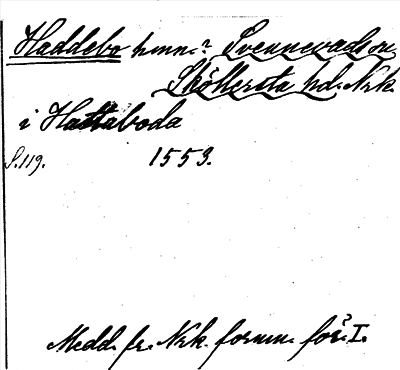 Haddebo hmn.? Svennevads sn
Sköllersta hd. Nrk.
i Hattaboda
S. 119. 1553.
Medd. fr. Nrk. fornm. för. I.